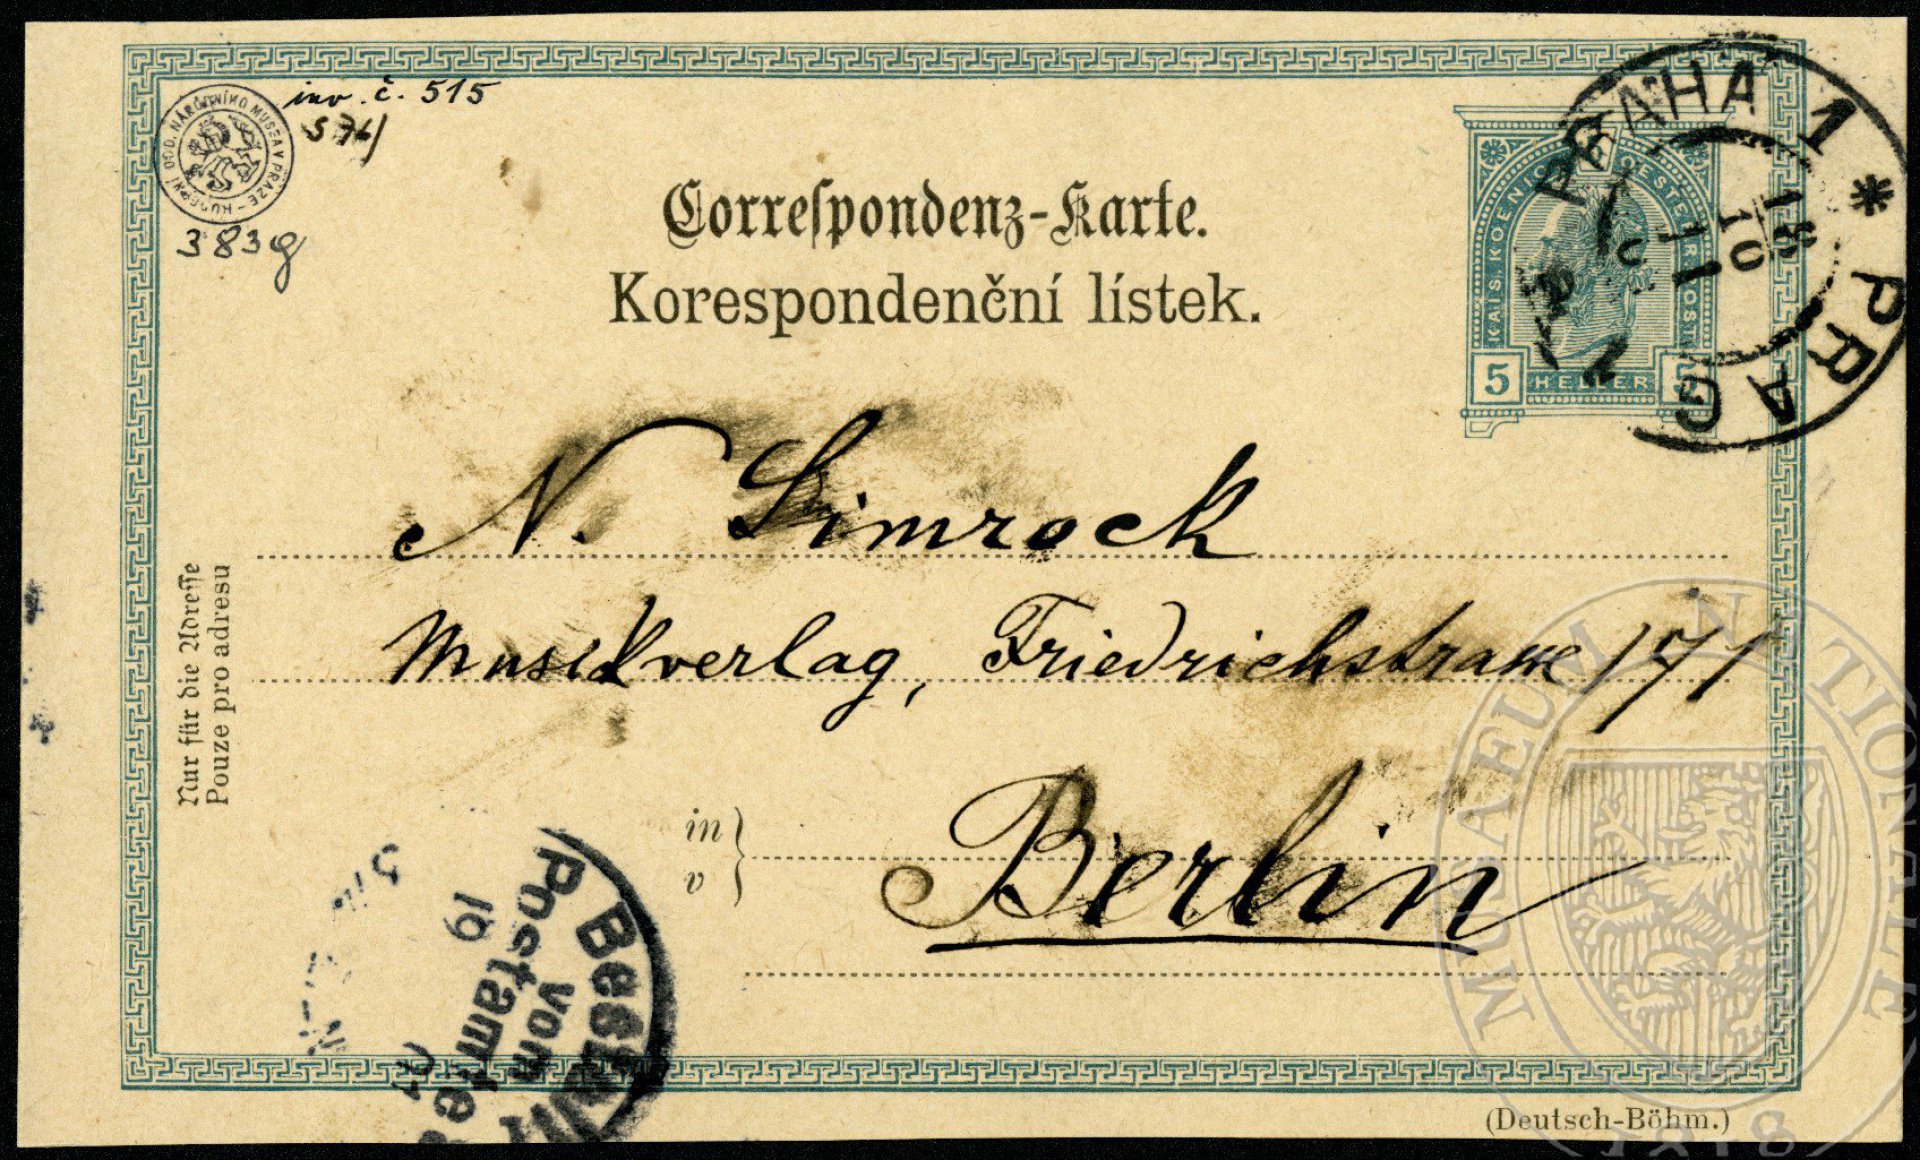 inv. č. 515
S 76/
HUDEBNÍ ODD. NÁRODNÍHO MUSEA V PRAZE
383g
Correſpondenz-Karte.
Korespondenční lístek.
KAIS. KOENIGL. OESTERR. POST
5 HELLER
PRAHA 1 * PRAG
10
N. Simrock
Musikverlag, Friedrichstrasse 171
in
v
Berlin
Nur für die Adreſſe
Pouze pro adresu
Bestellt
vom
Postamte
19
(Deutsch-Böhm.)
MUSAEUM NATIONALE
1818